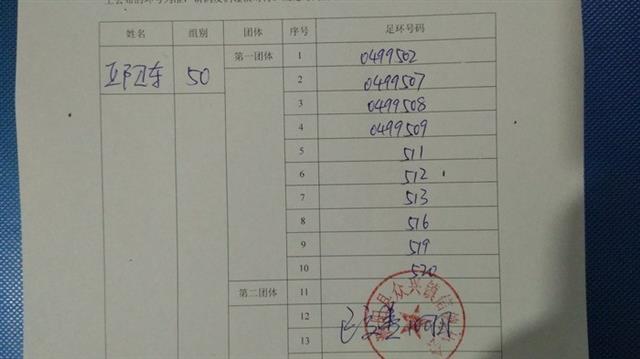 姓名 组别 团体 序号 足环号码
卫东 50 第一团体 1 0499502
2 0499507
3 0499508
4 0499509
5 511
6 512
7 513
8 516
9 519
10 520
第二团体 11
12
13
县众兴镇信